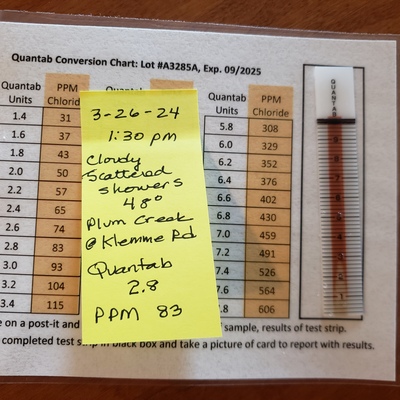 Quantab Conversion Chart: Lot #A3285A, Exp. 09/2025
Quantab Units PPM Chloride
1.4 31
1.6 37
1.8 43
2.0 50
2.2 57
2.4 65
2.6 74
2.8 83
3.0 93
3.2 104
3.4 115
3-26-24
1:30 pm
Cloudy
Scattered
showers
48°
Plum Creek
@ Klemme Rd
Quantab
2.8
PPM 83
PPM Chloride
5.8 308
6.0 329
6.2 352
6.4 376
6.6 402
6.8 430
7.0 459
7.2 491
7.4 526
7.6 564
7.8 606
QUANTAB
on a post-it and
sample, results of test strip.
completed test strip in black box and take a picture of card to report with results.